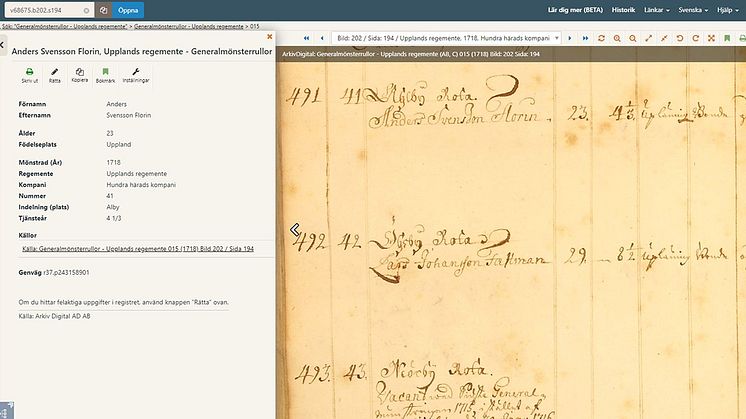 v68675.b202.s194
Öppna
Lär dig mer (BETA) Historik Länkar Svenska Hjälp
Sök: "Generalmönsterrullor - Upplands regemente" > Generalmönsterrullor - Upplands regemente > 015
Anders Svensson Florin, Upplands regemente - Generalmönsterrullor
Skriv ut Rätta Kopiera Bokmärk Inställningar
Förnamn Anders
Efternamn Svensson Florin
Ålder 23
Födelseplats Uppland
Mönstrad (År) 1718
Regemente Upplands regemente
Kompani Hundra härads kompani
Nummer 41
Indelning (plats) Alby
Tjänsteår 4 1/3
Källor
Källa: Generalmönsterrullor - Upplands regemente 015 (1718) Bild 202 / Sida 194
Genväg r37.p243158901
Om du hittar felaktiga uppgifter i registret, använd knappen "Rätta" ovan.
Källa: Arkiv Digital AD AB
Bild: 202 / Sida: 194 / Upplands regemente, Hundra härads kompani
ArkivDigital: Generalmönsterrullor - Upplands regemente (AB, C) 015 (1718) Bild: 202 Sida: 194
491 41 Rota.
Anders Svensson Florin. 23.
492 42 Rota
Johansson 29.
493. 43. Rota.
Vacant General